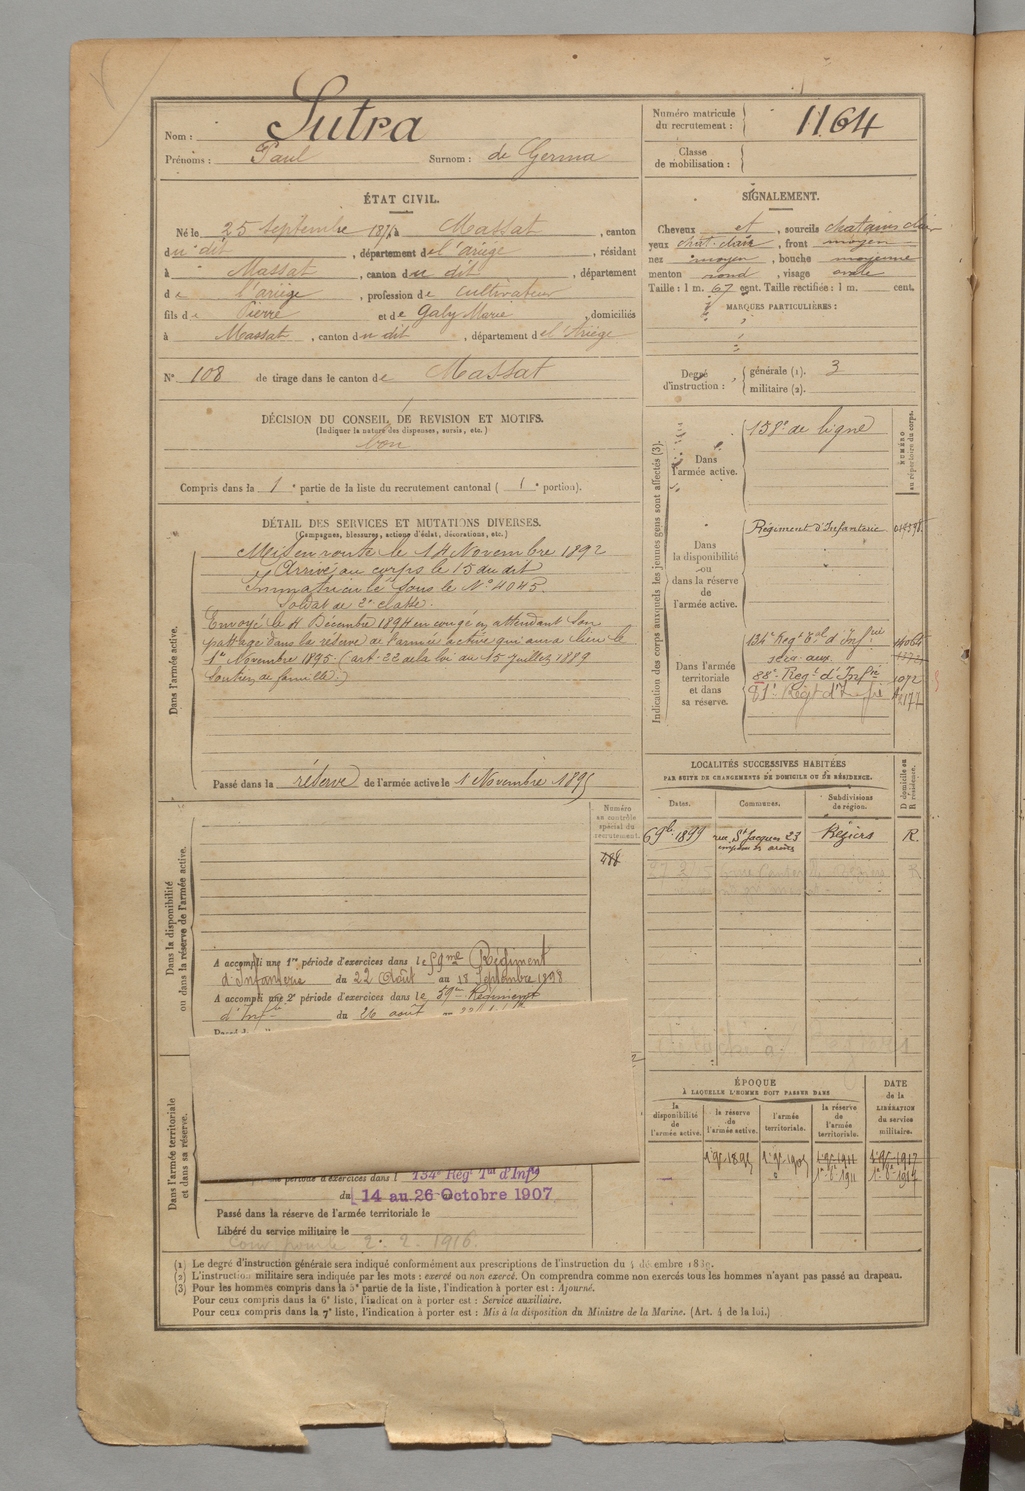 Nom : Sutra
Prénoms : Paul Surnom : de Germa
Numéro matricule du recrutement : 1164
Classe de mobilisation :
ÉTAT CIVIL.
Né le 25 Septembre 1871 à Massat, canton
du dit, département de l'ariège, résidant
à Massat, canton du dit, département
de l'ariège, profession de cultivateur
fils de Pierre et de Galy Marie, domiciliés
à Massat, canton du dit, département de l'Ariège
N° 108 de tirage dans le canton de Massat
SIGNALEMENT.
Cheveux et, sourcils chatains clair
yeux chat. clair, front moyen
nez moyen, bouche moyenne
menton rond, visage ovale
Taille : 1 m. 67 cent. Taille rectifiée : 1 m. cent.
MARQUES PARTICULIÈRES :
Degré d'instruction : générale (1). 3
militaire (2).
DÉCISION DU CONSEIL DE REVISION ET MOTIFS.
(Indiquer la nature des dispenses, sursis, etc.)
bon
Compris dans la 1e partie de la liste du recrutement cantonal ( 1e portion).
DÉTAIL DES SERVICES ET MUTATIONS DIVERSES.
(Campagnes, blessures, actions d'éclat, décorations, etc.)
Dans l'armée active.
Mis en route le 14 Novembre 1892
Arrivé au corps le 15 du dit
Immatriculé sous le N° 4045.
Soldat de 2e classe.
Envoyé le 4 Décembre 1894 en congé en attendant son
passage dans la réserve de l'armée active qui aura lieu le
1er Novembre 1895 (art. 22 de la loi du 15 Juillet 1889
soutien de famille.)
Passé dans la réserve de l'armée active le 1 Novembre 1895
Indication des corps auxquels les jeunes gens sont affectés (3).
NUMÉRO au répertoire du corps.
Dans l'armée active.
138e de ligne
Dans la disponibilité ou dans la réserve de l'armée active.
Régiment d'Infanterie
Dans l'armée territoriale et dans sa réserve.
134e Regt Tal d'Infrie
88e Regt d'Infrie 1072
81e Regt d'Infie
LOCALITÉS SUCCESSIVES HABITÉES
PAR SUITE DE CHANGEMENTS DE DOMICILE OU DE RÉSIDENCE.
D domicile ou R résidence.
Dates. Communes. Subdivisions de région.
6 9bre 1899 rue St Jacques 23 Béziers R.
Dans la disponibilité ou dans la réserve de l'armée active.
Numéro au contrôle spécial du recrutement.
A accompli une 1re période d'exercices dans le 59me Régiment
d'Infanterie du 22 Août au 18 Septembre 1898
A accompli une 2e période d'exercices dans le 59me Régiment
d'Infie du 26 août au
ÉPOQUE
À LAQUELLE L'HOMME DOIT PASSER DANS
DATE de la LIBÉRATION du service militaire.
la disponibilité de l'armée active.
la réserve de l'armée active.
l'armée territoriale.
la réserve de l'armée territoriale.
1er 9bre 1895 1er 9bre 1905 1er 9bre 1911 1er 9bre 1917
1er 8bre 1911 1er 8bre 1917
Dans l'armée territoriale et dans sa réserve.
période d'exercices dans l 134e Régt Tal d'Infie
du 14 au 26 Octobre 1907
Passé dans la réserve de l'armée territoriale le
Libéré du service militaire le
2. 2. 1916.
(1) Le degré d'instruction générale sera indiqué conformément aux prescriptions de l'instruction du 4 décembre 1889.
(2) L'instruction militaire sera indiquée par les mots : exercé ou non exercé. On comprendra comme non exercés tous les hommes n'ayant pas passé au drapeau.
(3) Pour les hommes compris dans la 5e partie de la liste, l'indication à porter est : Ajourné.
Pour ceux compris dans la 6e liste, l'indication à porter est : Service auxiliaire.
Pour ceux compris dans la 7e liste, l'indication à porter est : Mis à la disposition du Ministre de la Marine. (Art. 4 de la loi.)